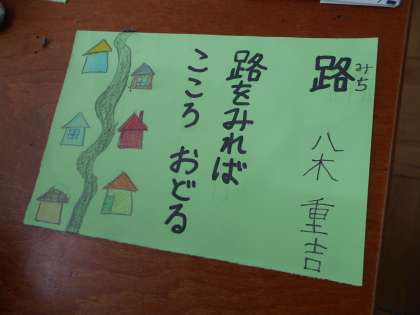 路
みち
八木 重吉
路をみれば
こころ おどる